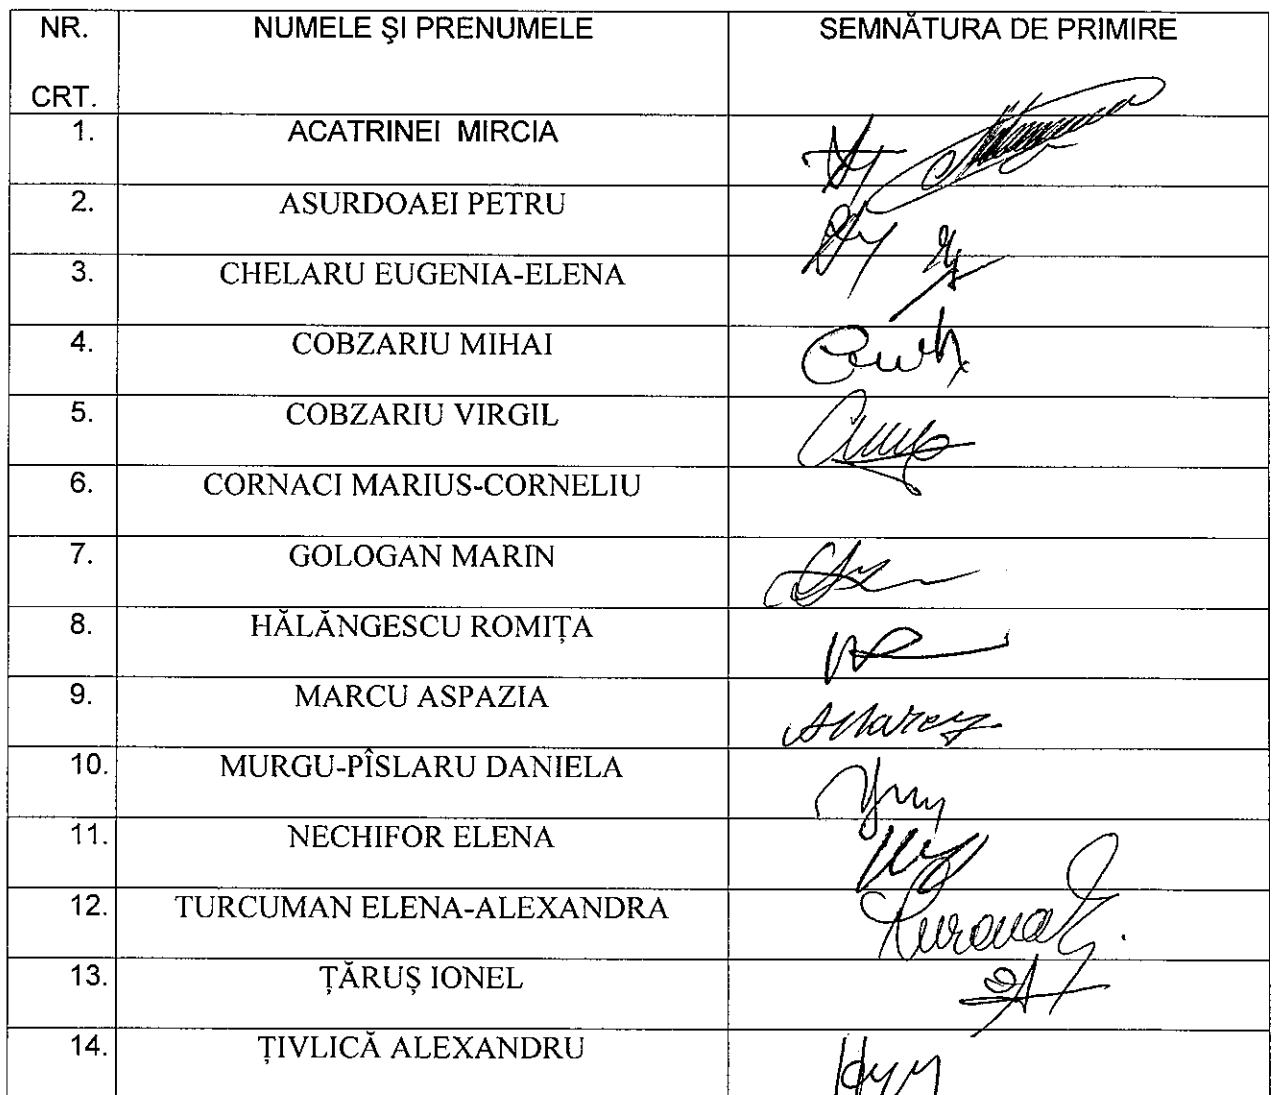 NR. CRT. NUMELE ŞI PRENUMELE SEMNĂTURA DE PRIMIRE
1. ACATRINEI MIRCIA
2. ASURDOAEI PETRU
3. CHELARU EUGENIA-ELENA
4. COBZARIU MIHAI
5. COBZARIU VIRGIL
6. CORNACI MARIUS-CORNELIU
7. GOLOGAN MARIN
8. HĂLĂNGESCU ROMIȚA
9. MARCU ASPAZIA
10. MURGU-PÎSLARU DANIELA
11. NECHIFOR ELENA
12. TURCUMAN ELENA-ALEXANDRA
13. ȚĂRUȘ IONEL
14. ȚIVLICĂ ALEXANDRU